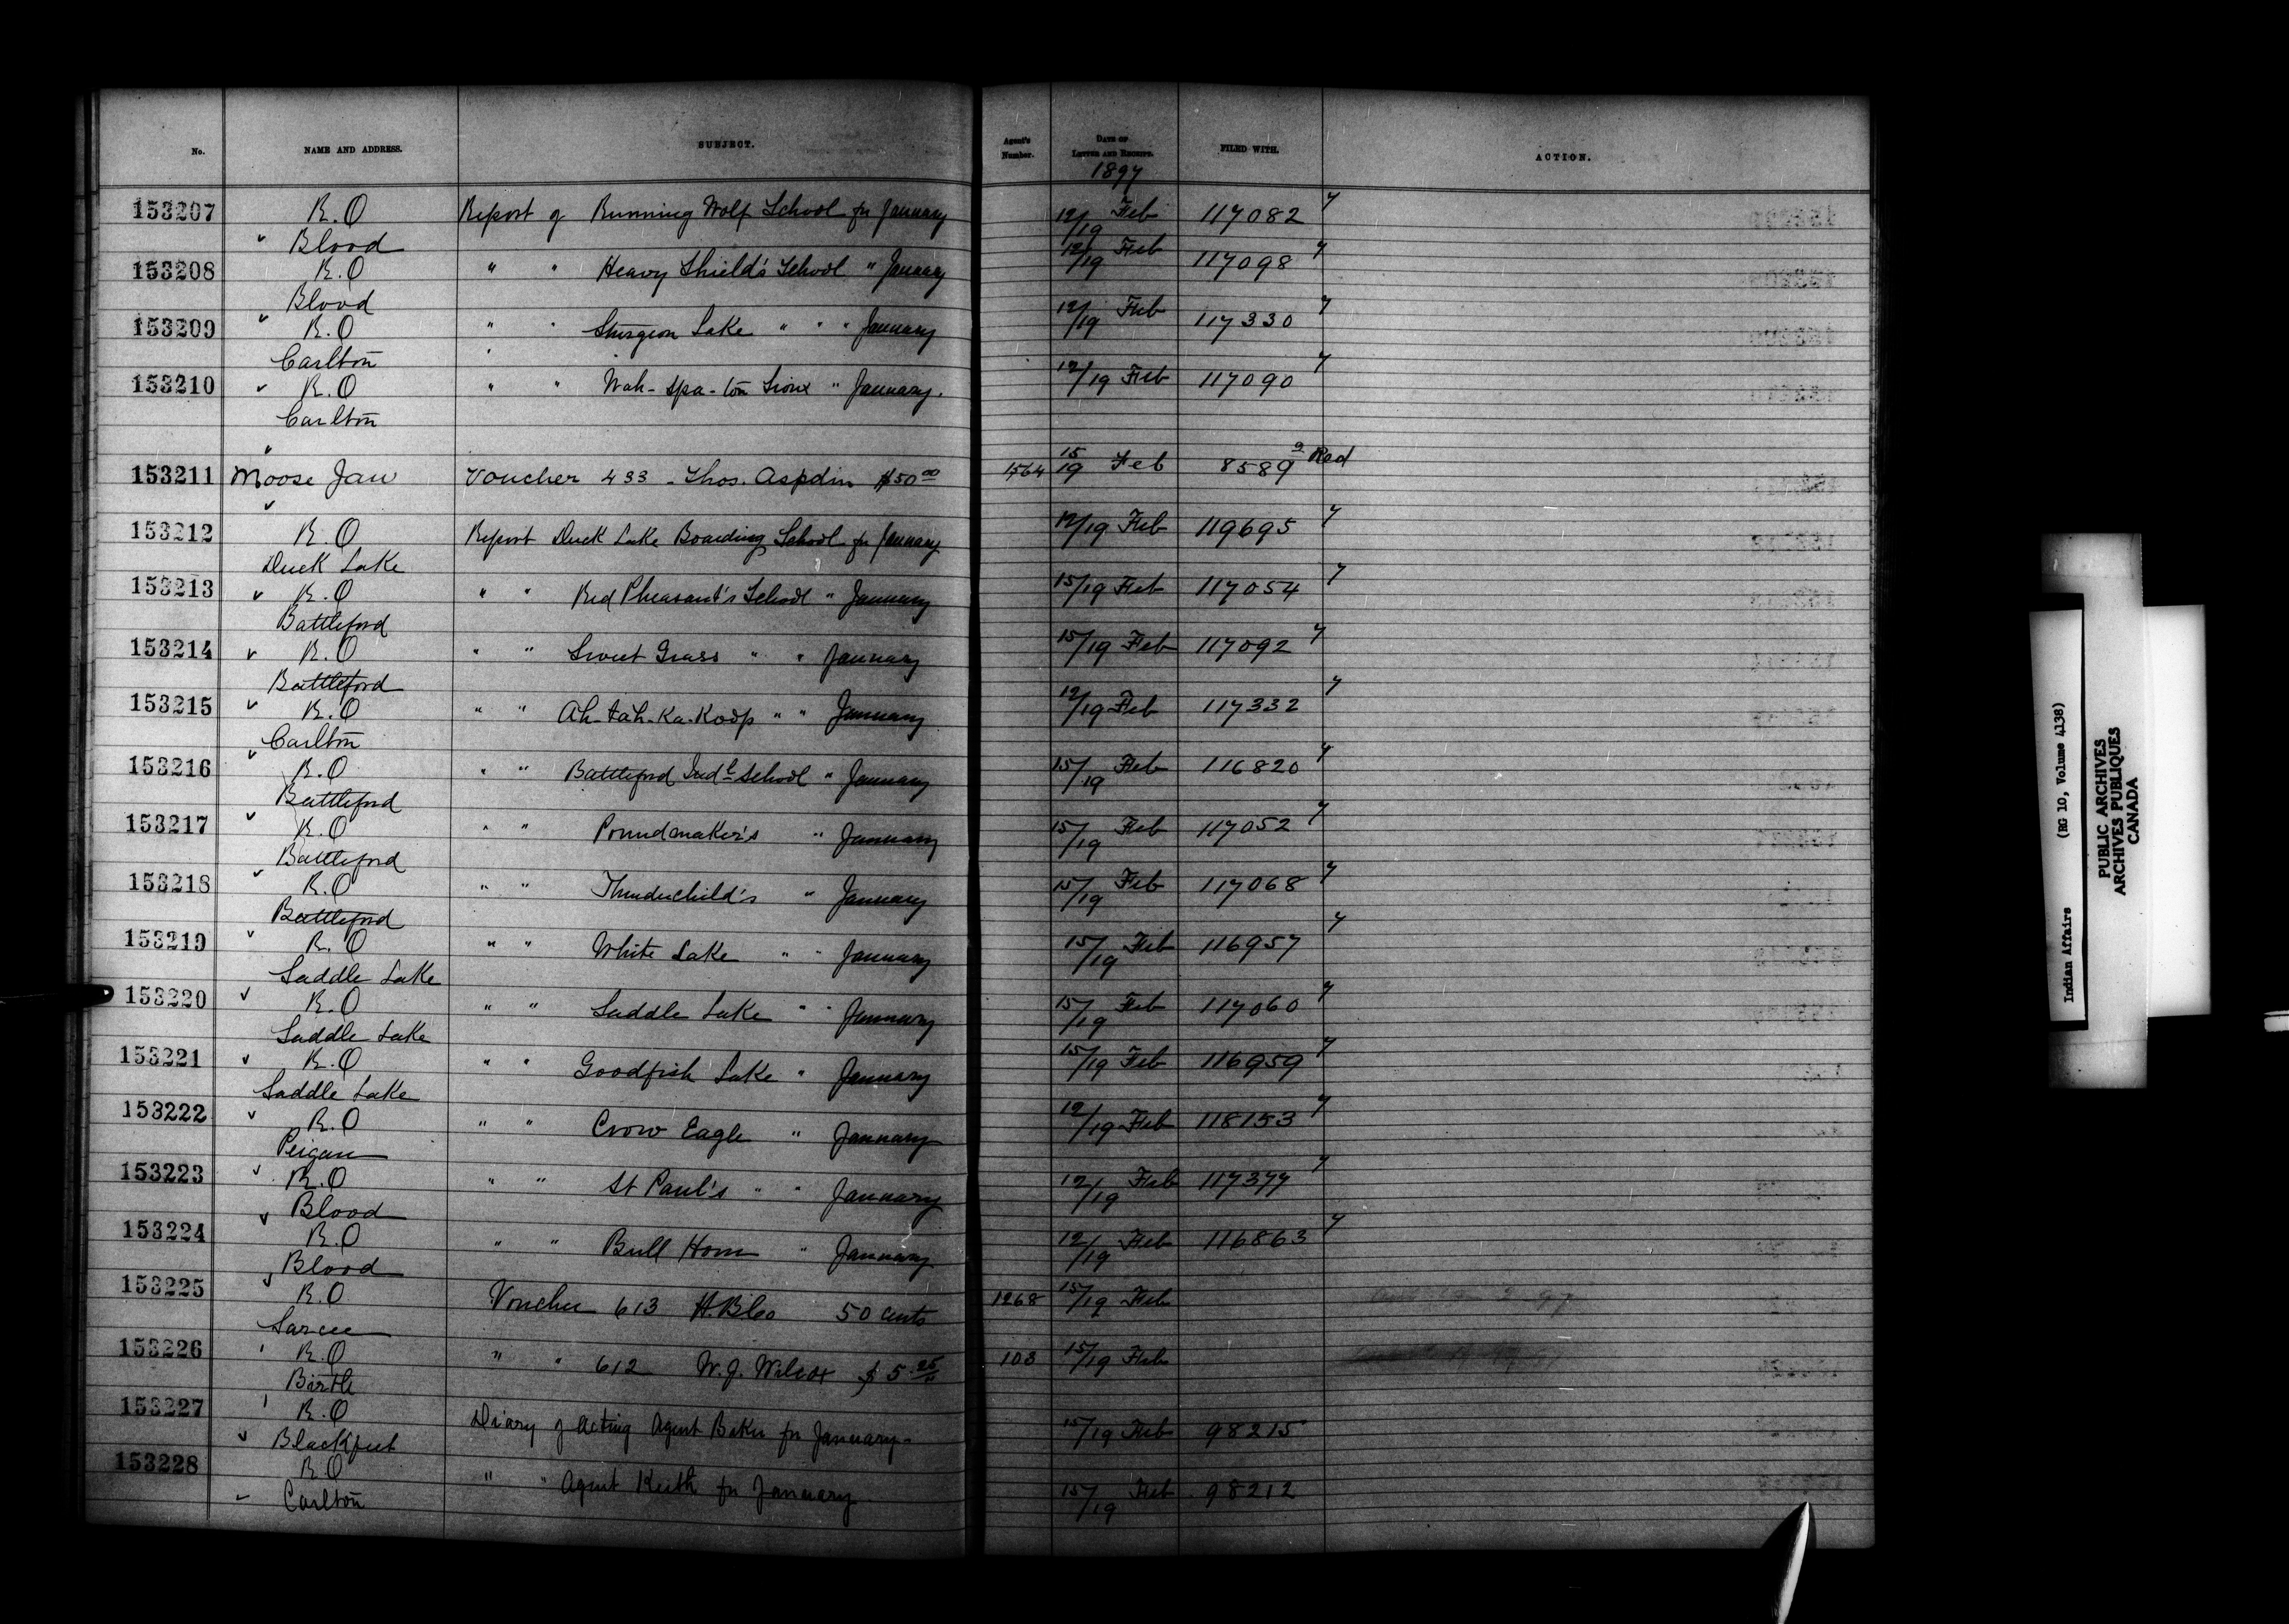 No. NAME AND ADDRESS. SUBJECT. Agent's Number. DATE OF LETTER AND RECEIPT. FILED WITH. ACTION.
1897
153207 R.O Report of Running Wolf School for January 12/19 Feb 117082 7
Blood
153208 R.O " " Heavy Shield's School " January 12/19 Feb 117098 7
Blood
153209 R.O " " Sturgeon Lake " " " January 12/19 Feb 117330 7
Carlton
153210 R.O " " Wah-spa-ton Sioux " January. 12/19 Feb 117090 7
Carlton
153211 Moose Jaw Voucher 433 - Thos. Aspdin $50 00 1564 15/19 Feb 8589 a Red
153212 R.O Report Duck Lake Boarding School for January 12/19 Feb 119695 7
Duck Lake
153213 R.O " " Red Pheasant's School " January 15/19 Feb 117054 7
Battleford
153214 R.O " " Sweet Grass " " January 15/19 Feb 117092 7
Battleford
153215 R.O " " Ah-tah-ka-koop " " January 12/19 Feb 117332 7
Carlton
153216 R.O " " Battleford Indl School " January 15/19 Feb 116820 7
Battleford
153217 R.O " " Poundmaker's " January 15/19 Feb 117052 7
Battleford
153218 R.O " " Thunderchild's " January 15/19 Feb 117068 7
Battleford
153219 R.O " " White Lake " " January 15/19 Feb 116957 7
Saddle Lake
153220 R.O " " Saddle Lake " " January 15/19 Feb 117060 7
Saddle Lake
153221 R.O " " Goodfish Lake " January 15/19 Feb 116959 7
Saddle Lake
153222 R.O " " Crow Eagle " January 12/19 Feb 118153 7
Peigan
153223 R.O " " St Paul's " " January 12/19 Feb 117377 7
Blood
153224 R.O " " Bull Horn " January 12/19 Feb 116863 7
Blood
153225 R.O Voucher 613 H.B.Co 50 cents 1268 15/19 Feb
Sarcee
153226 R.O " " 612 W.J. Wilcox $5.25 103 15/19 Feb
Birtle
153227 R.O Diary of acting Agent Baker for January 15/19 Feb 98215
Blackfeet
153228 R.O " " Agent Keith for January 15/19 Feb 98212
Carlton
Indian Affairs (RG 10, Volume 4138)
PUBLIC ARCHIVES
ARCHIVES PUBLIQUES
CANADA